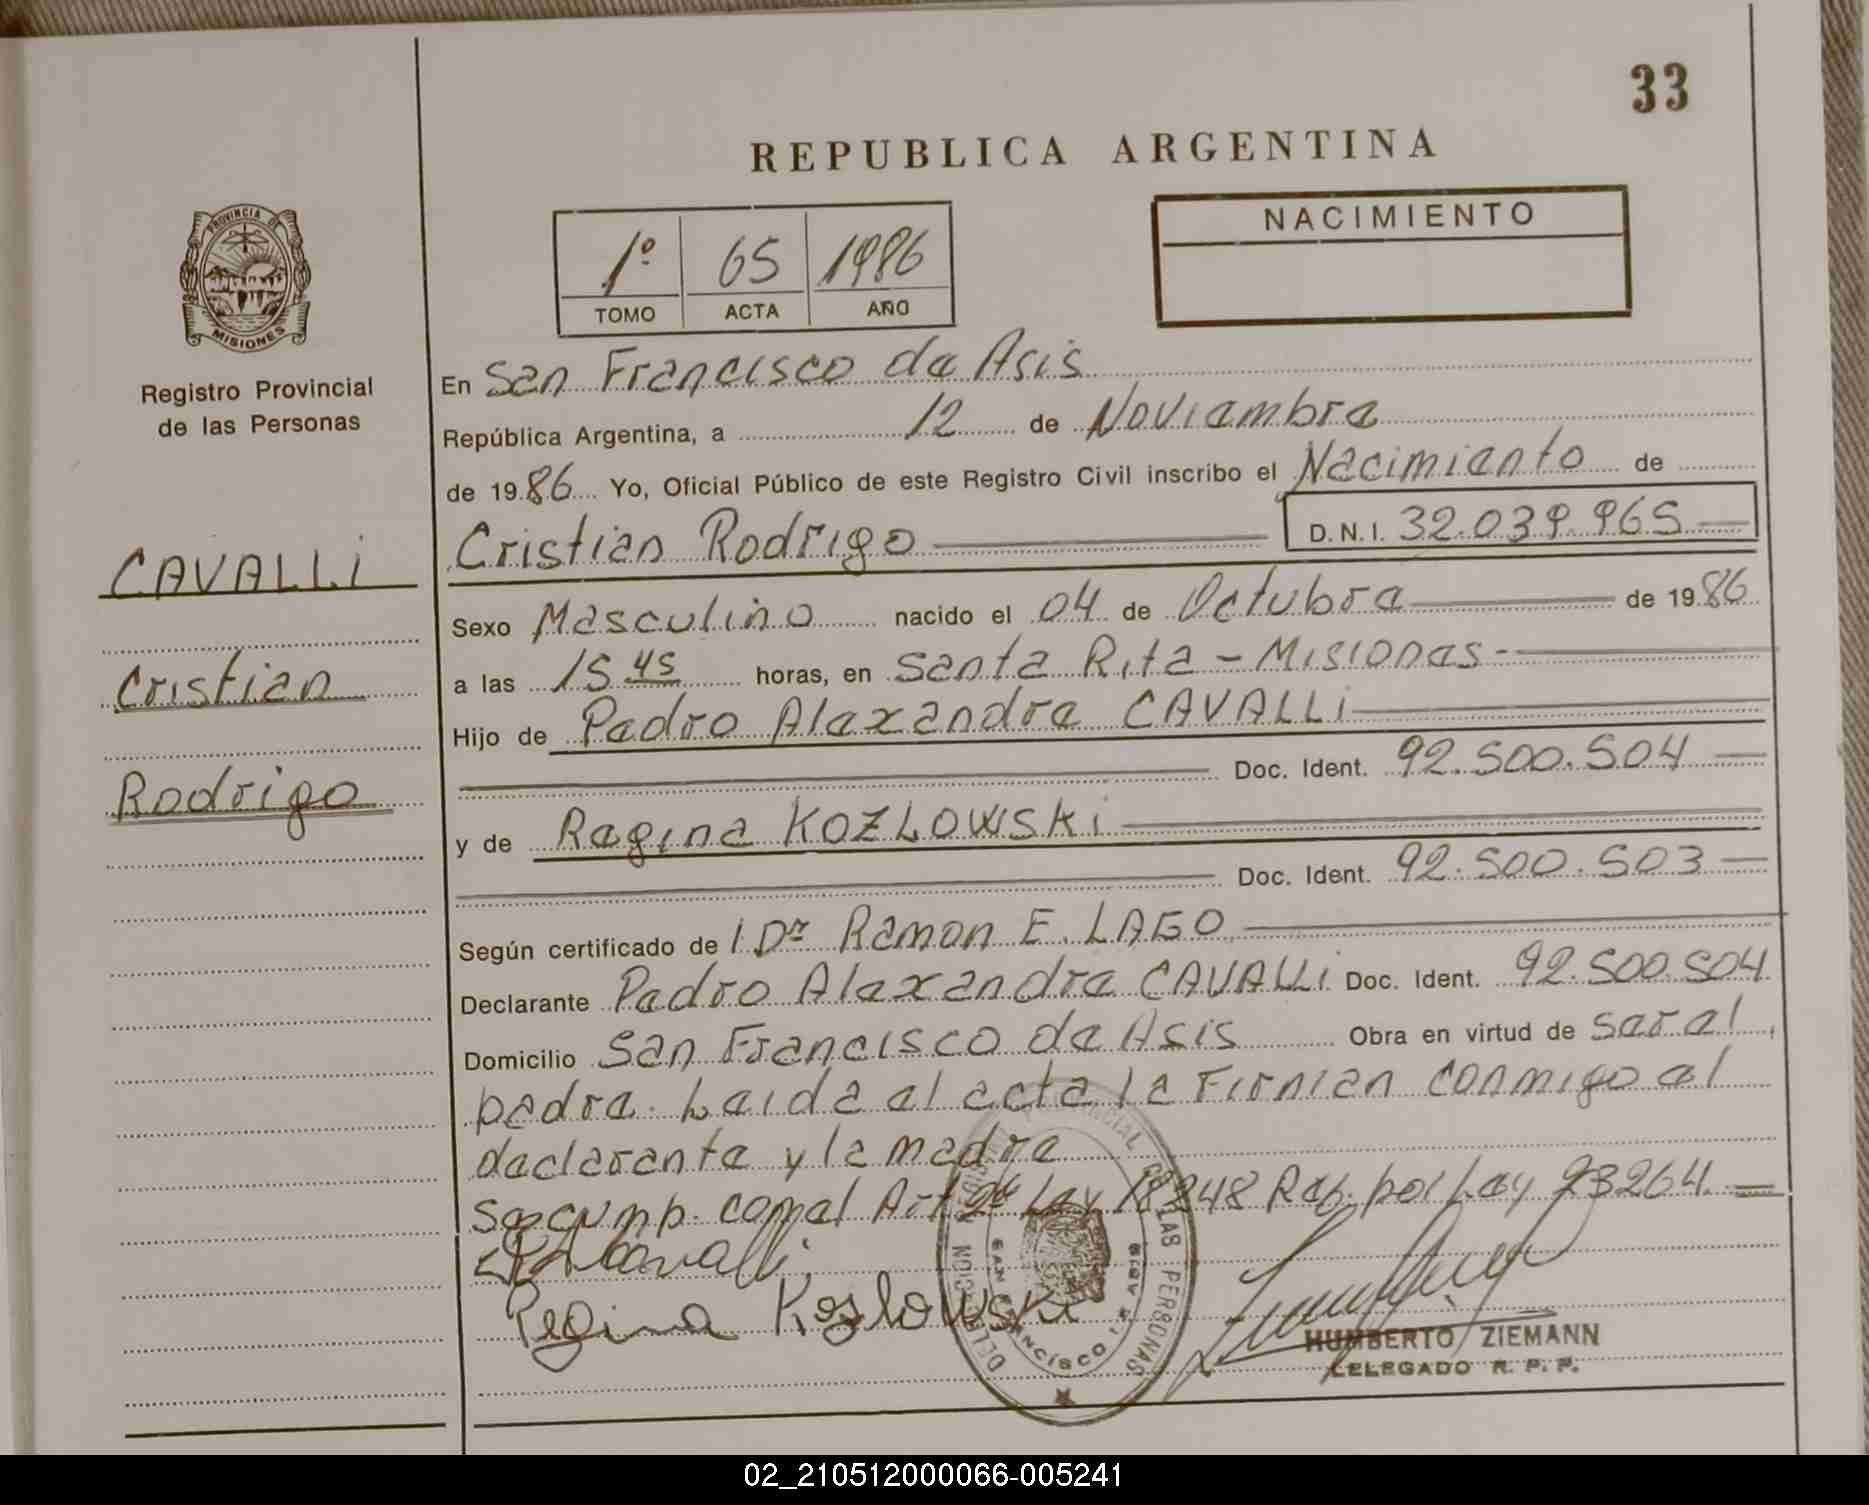 33
REPUBLICA ARGENTINA
1º 65 1986
TOMO ACTA AÑO
NACIMIENTO
PROVINCIA DE
MISIONES
Registro Provincial
de las Personas
CAVALLi
Cristian
Rodrigo
En San Francisco de Asis
República Argentina, a 12 de Noviembre
de 1986 Yo, Oficial Público de este Registro Civil inscribo el Nacimiento de
Cristian Rodrigo D.N.I. 32.039.965
Sexo Masculino nacido el 04 de Octubre de 1986
a las 15 45 horas, en Santa Rita - Misiones -
Hijo de Pedro Alexandre CAVALLi
Doc. Ident. 92.500.504
y de Regina KOZLOWSKi
Doc. Ident. 92.500.503
Según certificado de Dr Ramon E. LAGO
Declarante Pedro Alexandre CAVALLi Doc. Ident. 92.500.504
Domicilio San Francisco de Asis Obra en virtud de ser el
padre. Leida el acta la Firman conmigo el
declarante y la madre
Se cump. con el Art 2º Ley 18248 Rep. por Ley 23264.
Cavalli
Regina Kozlowski
LAS PERSONAS
SAN FRANCISCO
HUMBERTO ZIEMANN
DELEGADO R. P. P.
02_210512000066-005241